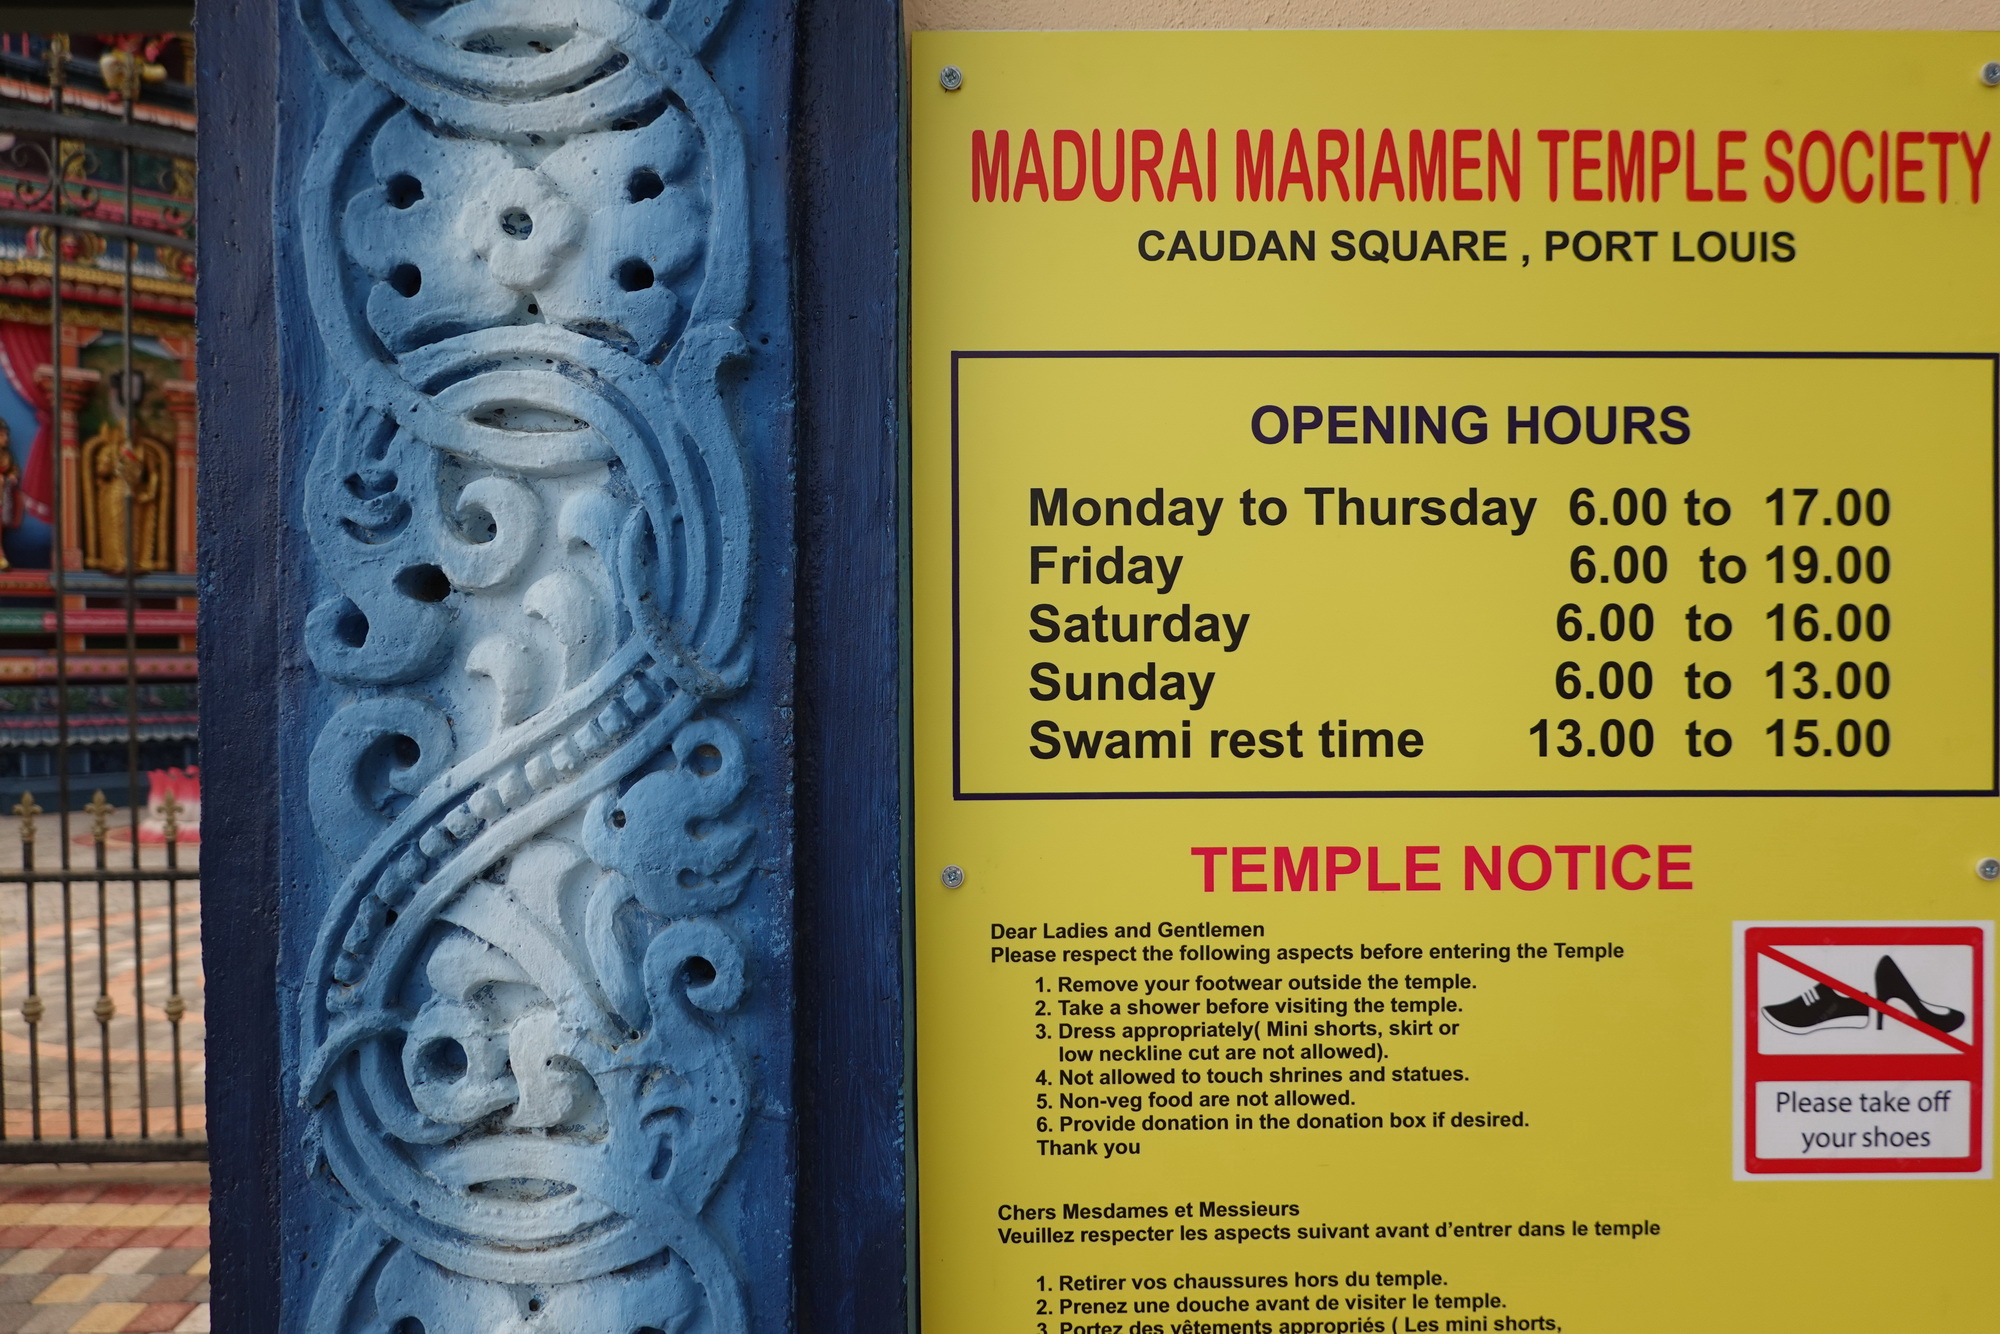 MADURAI MARIAMEN TEMPLE SOCIETY
CAUDAN SQUARE , PORT LOUIS
OPENING HOURS
Monday to Thursday 6.00 to 17.00
Friday 6.00 to 19.00
Saturday 6.00 to 16.00
Sunday 6.00 to 13.00
Swami rest time 13.00 to 15.00
TEMPLE NOTICE
Dear Ladies and Gentlemen
Please respect the following aspects before entering the Temple
1. Remove your footwear outside the temple.
2. Take a shower before visiting the temple.
3. Dress appropriately( Mini shorts, skirt or
low neckline cut are not allowed).
4. Not allowed to touch shrines and statues.
5. Non-veg food are not allowed.
6. Provide donation in the donation box if desired.
Thank you
Please take off
your shoes
Chers Mesdames et Messieurs
Veuillez respecter les aspects suivant avant d’entrer dans le temple
1. Retirer vos chaussures hors du temple.
2. Prenez une douche avant de visiter le temple.
3. Portez des vêtements appropriés ( Les mini shorts,